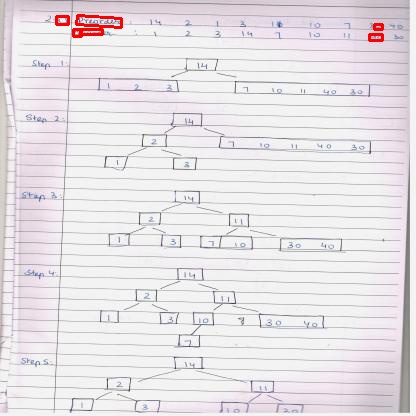 2 Preorder : 14 2 1 3 11 10 7 40
: 1 2 3 14 7 10 11 30
Step 1:
14
1 2 3 7 10 11 40 30
Step 2:
14
2 7 10 11 40 30
1 3
Step 3:
14
2 11
1 3 7 10 30 40
Step 4:
14
2 11
1 3 10 30 40
7
Step 5:
14
2 11
1 3 10 30